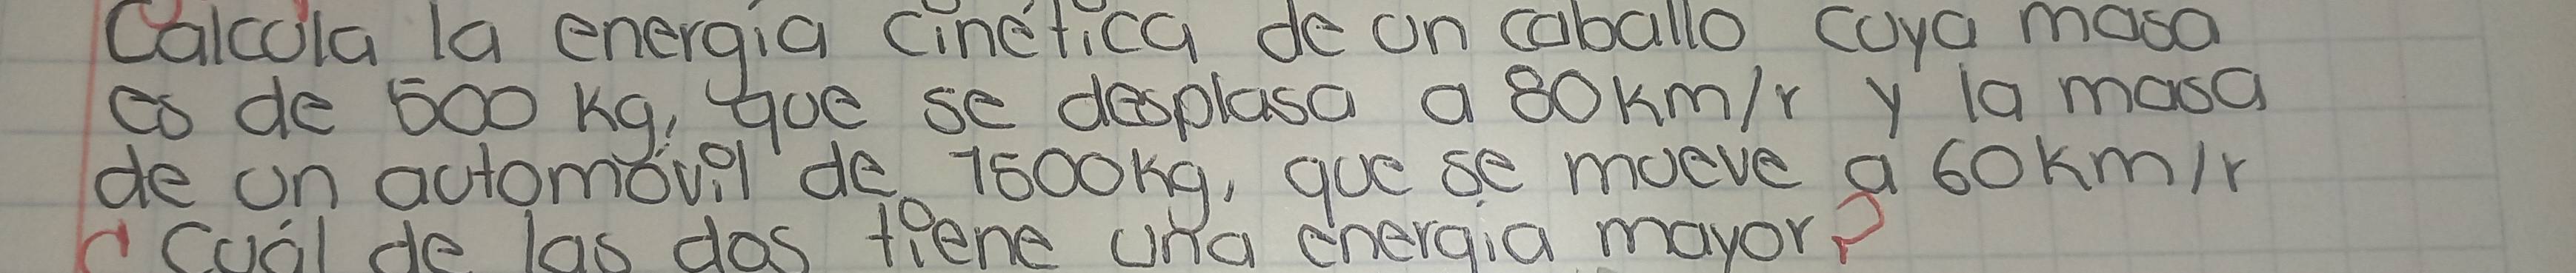 Calcula la energía cinética de un caballo cuya masa
es de 500 kg, que se desplasa a 80km/r y la masa
de un automóvil de 1500kg, que se mueve a 60km/r
¿Cuál de las dos tiene una energia mayor?